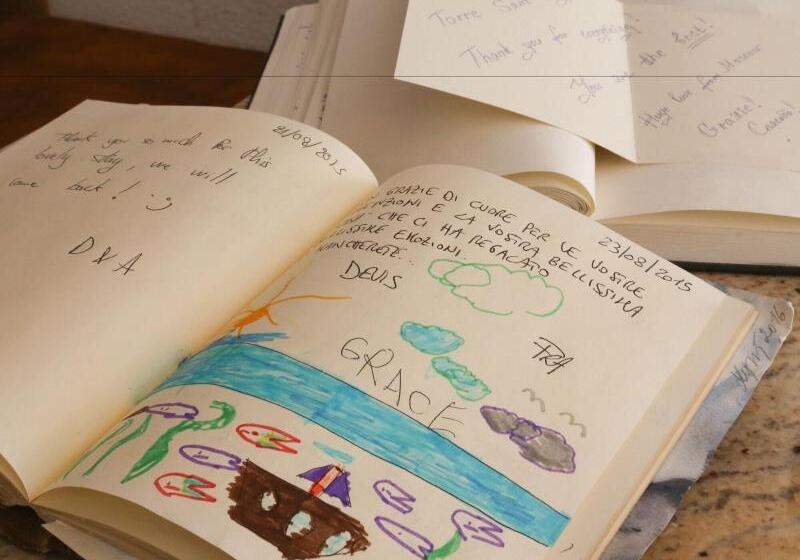 21/08/2015
Thank you so much for this
lovely stay, we will
come back! :)
D & A
23/08/2015
GRAZIE DI CUORE PER LE VOSTRE
E LA VOSTRA BELLISSIMA
CHE CI HA REGALATO
EMOZIONI.
DEVIS
FRA
GRACE
Torre San
Thank you for everything!
You are the best!
Huge love from
Grazie!